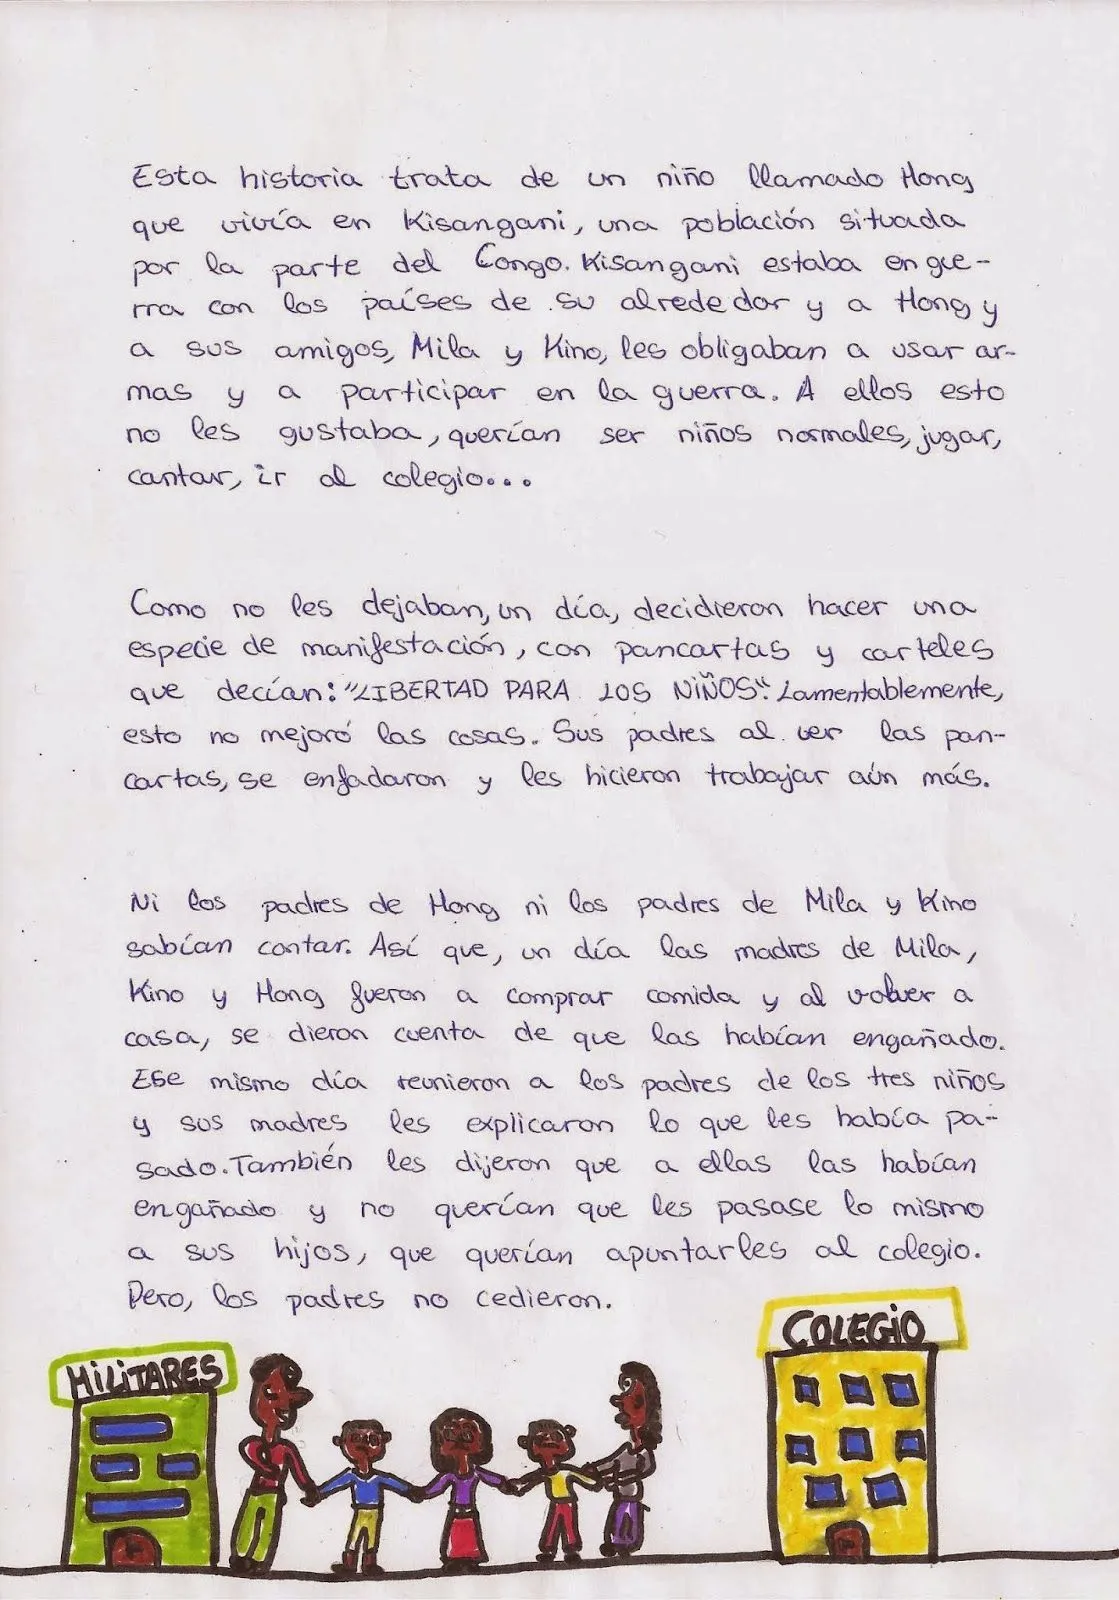 Esta historia trata de un niño llamado Hong
que vivía en Kisangani, una población situada
por la parte del Congo. Kisangani estaba en gue-
rra con los países de su alrededor y a Hong y
a sus amigos, Mila y Kino, les obligaban a usar ar-
mas y a participar en la guerra. A ellos esto
no les gustaba, querían ser niños normales, jugar,
cantar, ir al colegio...
Como no les dejaban, un día, decidieron hacer una
especie de manifestación, con pancartas y carteles
que decían: "LIBERTAD PARA LOS NIÑOS". Lamentablemente,
esto no mejoró las cosas. Sus padres al ver las pan-
cartas, se enfadaron y les hicieron trabajar aún más.
Ni los padres de Hong ni los padres de Mila y Kino
sabían contar. Así que, un día las madres de Mila,
Kino y Hong fueron a comprar comida y al volver a
casa, se dieron cuenta de que las habían engañado.
Ese mismo día reunieron a los padres de los tres niños
y sus madres les explicaron lo que les había pa-
sado. También les dijeron que a ellas las habían
engañado y no querían que les pasase lo mismo
a sus hijos, que querían apuntarles al colegio.
Pero, los padres no cedieron.
MILITARES
COLEGIO